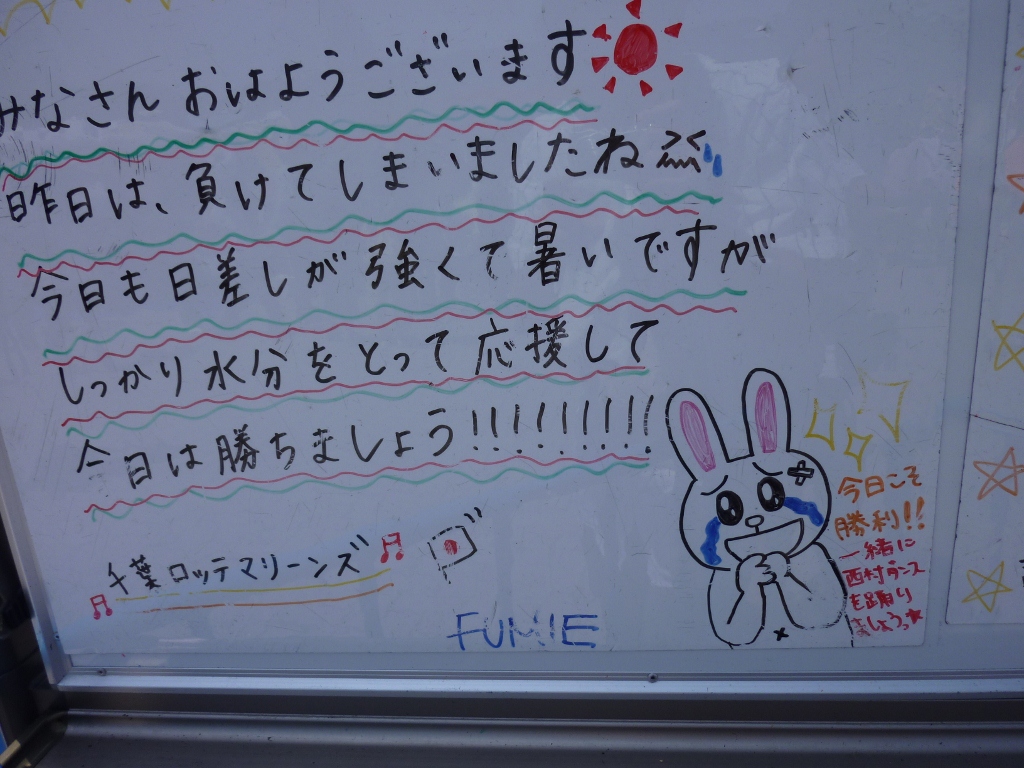 みなさん おはようございます
昨日は、負けてしまいましたね
今日も日差しが強くて暑いですが
しっかり水分をとって応援して
今日は勝ちましょう!!!!!!!!!
千葉ロッテマリーンズ
FUMIE
今日こそ
勝利!!
一緒に
西村ダンス
を踊り
ましょうっ★